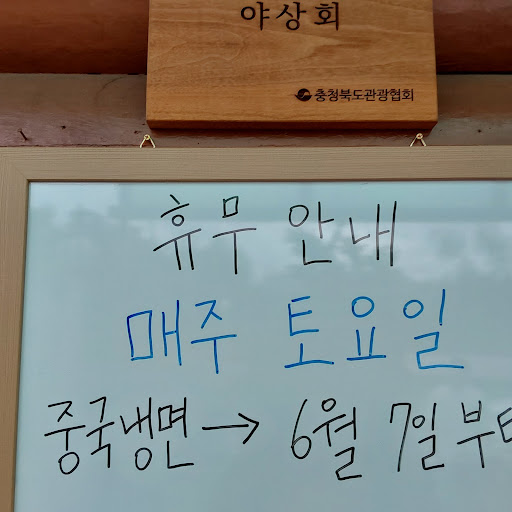 야상회
충청북도관광협회
휴무 안내
매주 토요일
중국냉면→ 6월 7일부터